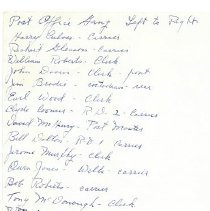 Post Office Gang Left to Right
Harry Culver - Carrier
Robert Gleason - carrier
William Roberts - Clerk
John Doorn - Clerk - post
Jim Brodie - custodian -
Earl Wood - Clerk
Clyde Loomis - R.D. 2 - Carrier
David McHenry - Post Master
Bill Dalton - R.D 1 carrier
Jerome Murphy - Clerk
Oliver Jones - Wells - carrier
Bob Roberts - carrier
Tony McDonough - Clerk